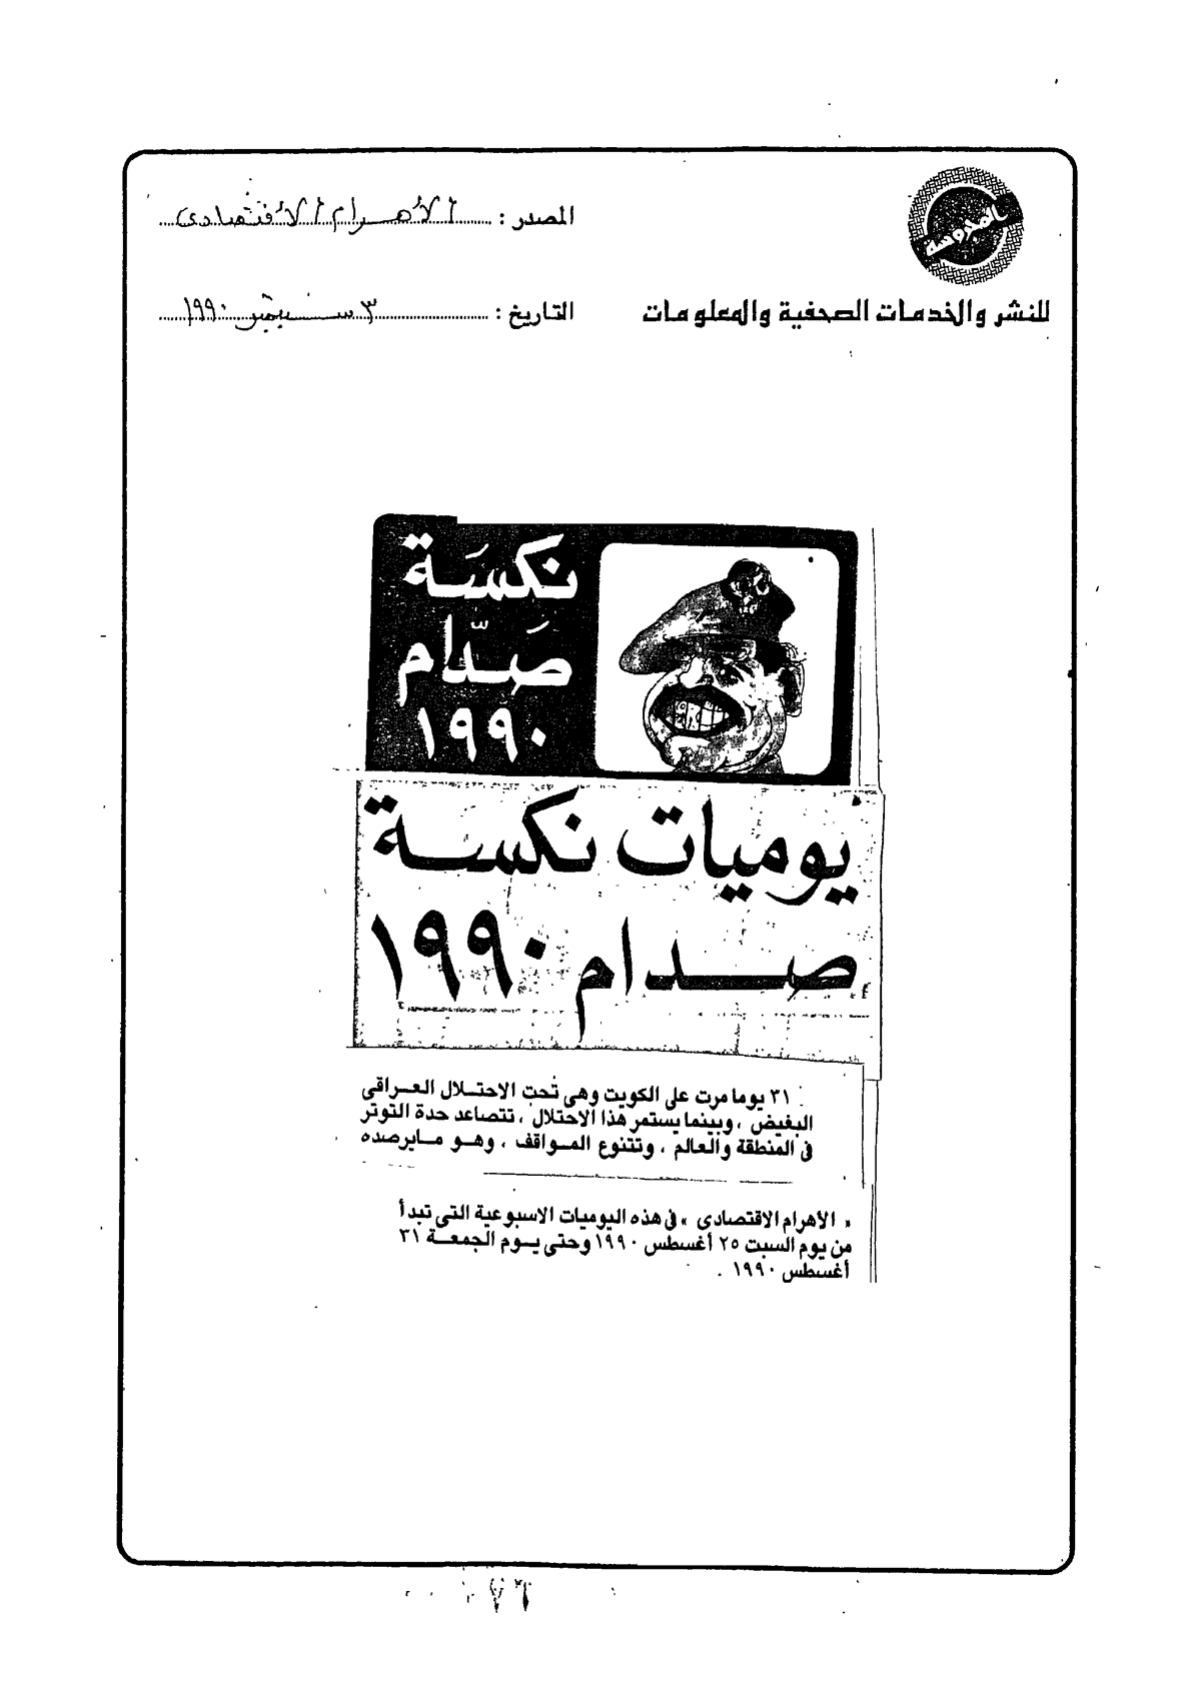 المحروسة
المصدر : الأهرام الأقتصادى
للنشر والخدمات الصحفية والمعلومات
التاريخ : ٣ سبتمبر ١٩٩٠
نكسَة
صَدّام
١٩٩٠
يوميات نكسـة
صـدام ١٩٩٠
٣١ يوما مرت على الكويت وهى تحت الاحتـلال العـراقى
البغيض ، وبينما يستمر هذا الاحتلال ، تتصاعد حدة التوتر
فى المنطقة والعالم ، وتتنوع المـواقف ، وهـو مـايرصده
« الأهرام الاقتصادى » فى هذه اليوميات الاسبوعية التى تبدأ
من يوم السبت ٢٥ أغسطس ١٩٩٠ وحتى يـوم الجمعـة ٣١
أغسطس ١٩٩٠ .